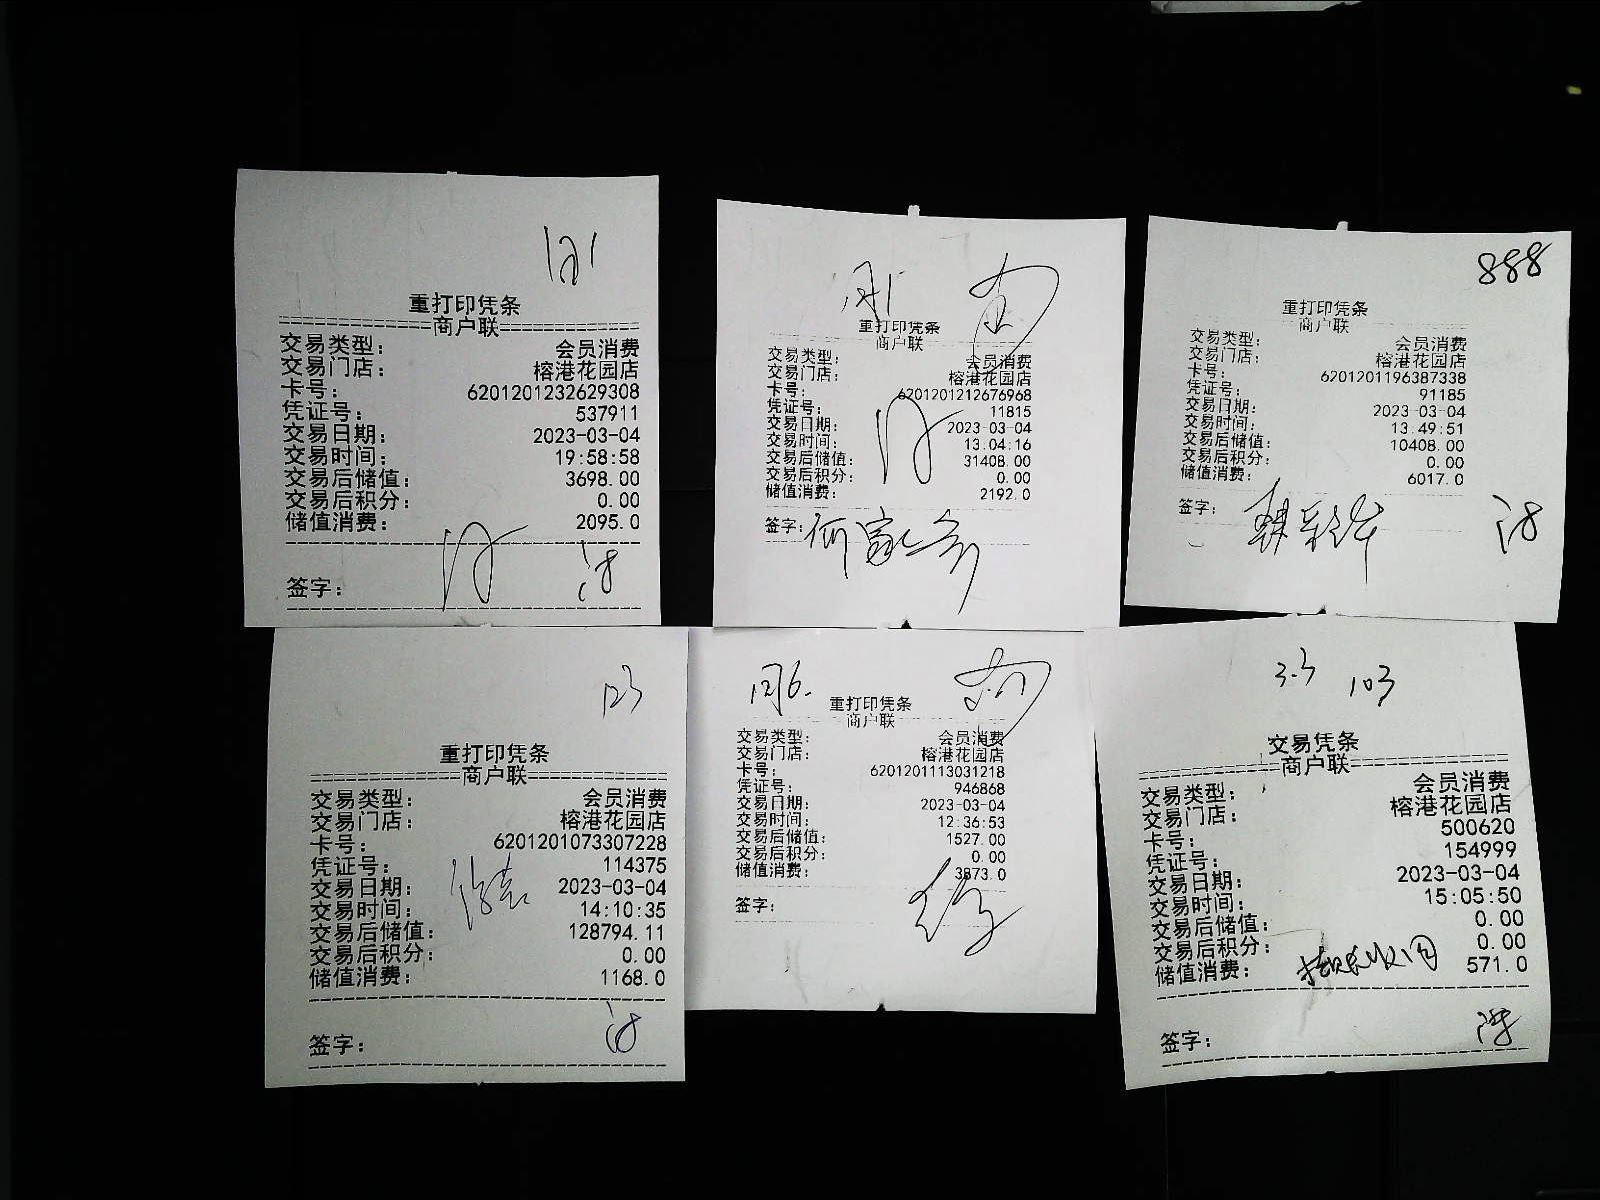 121
重打印凭条
商户联
交易类型: 会员消费
交易门店: 榕港花园店
卡号: 6201201232629308
凭证号: 537911
交易日期: 2023-03-04
交易时间: 19:58:58
交易后储值: 3698.00
交易后积分: 0.00
储值消费: 2095.0
签字:
重打印凭条
商户联
交易类型: 会员消费
交易门店: 榕港花园店
卡号: 6201201212676968
凭证号: 11815
交易日期: 2023-03-04
交易时间: 13:04:16
交易后储值: 31408.00
交易后积分: 0.00
储值消费: 2192.0
签字:
888
重打印凭条
商户联
交易类型: 会员消费
交易门店: 榕港花园店
卡号: 6201201196387338
凭证号: 91185
交易日期: 2023-03-04
交易时间: 13:49:51
交易后储值: 10408.00
交易后积分: 0.00
储值消费: 6017.0
签字:
123
重打印凭条
商户联
交易类型: 会员消费
交易门店: 榕港花园店
卡号: 6201201073307228
凭证号: 114375
交易日期: 2023-03-04
交易时间: 14:10:35
交易后储值: 128794.11
交易后积分: 0.00
储值消费: 1168.0
签字:
重打印凭条
商户联
交易类型: 会员消费
交易门店: 榕港花园店
卡号: 6201201113031218
凭证号: 946868
交易日期: 2023-03-04
交易时间: 12:36:53
交易后储值: 1527.00
交易后积分: 0.00
储值消费: 3873.0
签字:
3.3 103
交易凭条
商户联
交易类型: 会员消费
交易门店: 榕港花园店
卡号: 500620
凭证号: 154999
交易日期: 2023-03-04
交易时间: 15:05:50
交易后储值: 0.00
交易后积分: 0.00
储值消费: 571.0
签字: